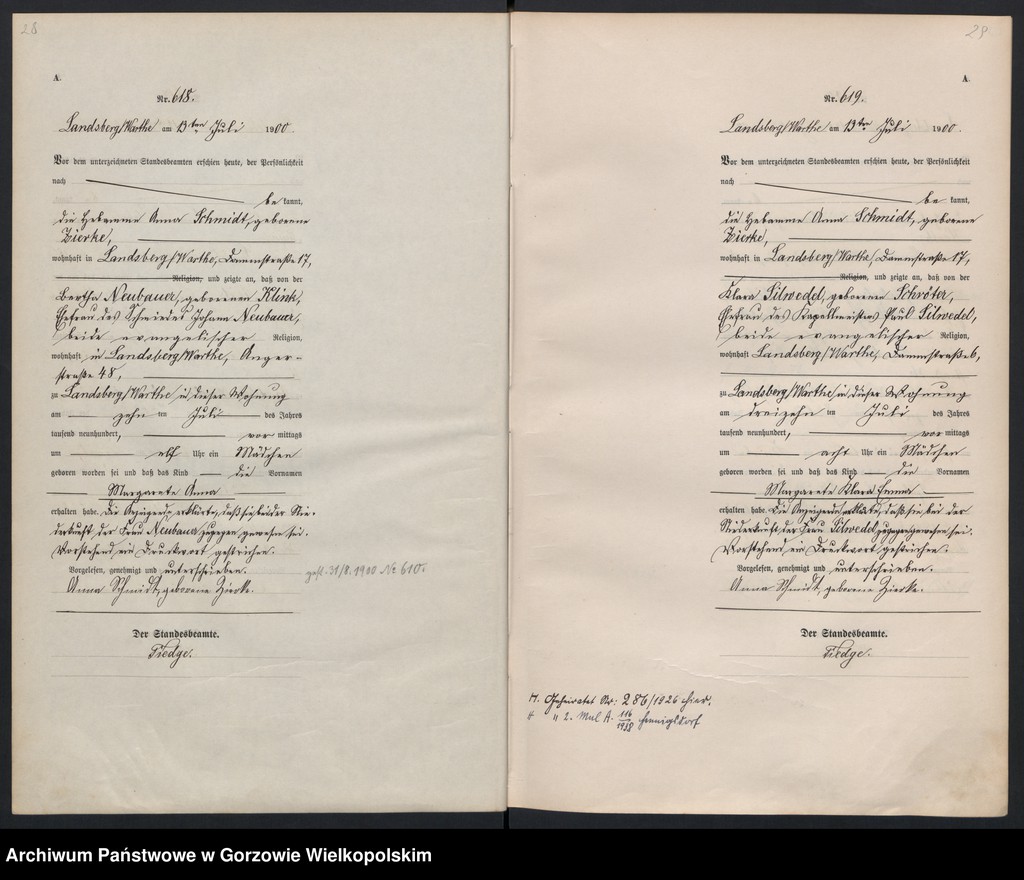 28
A.
Nr. 618.
Landsberg/Warthe am 13ten Juli 1900.
Vor dem unterzeichneten Standesbeamten erschien heute, der Persönlichkeit
nach
be kannt,
die Hebamme Anna Schmidt, geborene
Zierke,
wohnhaft in Landsberg/Warthe, Dammstraße 17,
Religion, und zeigte an, daß von der
Bertha Neubauer, geborenen Klink,
Ehefrau des Schmiedes Johann Neubauer,
beide evangelischer Religion,
wohnhaft in Landsberg/Warthe, Anger-
straße 48,
zu Landsberg/Warthe in dieser Wohnung
am zehn ten Juli des Jahres
tausend neunhundert, vor mittags
um elf Uhr ein Mädchen
geboren worden sei und daß das Kind die Vornamen
Margarete Anna
erhalten habe. Die Anzeigende erklärte, daß sie bei der Nie-
derkunft der Frau Neubauer zugegen gewesen sei.
Vorstehend ein Druckwort gestrichen.
Vorgelesen, genehmigt und unterschrieben.
Anna Schmidt, geborene Zierke.
gest. 31/8. 1900 No 610.
Der Standesbeamte.
Tiedge.
29
A.
Nr. 619.
Landsberg/Warthe am 13ten Juli 1900.
Vor dem unterzeichneten Standesbeamten erschien heute, der Persönlichkeit
nach
be kannt,
die Hebamme Anna Schmidt, geborene
Zierke,
wohnhaft in Landsberg/Warthe, Dammstraße 17,
Religion, und zeigte an, daß von der
Klara Pilwedel, geborenen Schröter,
Ehefrau des Kapellmeisters Paul Pilwedel,
beide evangelischer Religion,
wohnhaft Landsberg/Warthe, Dammstraße 6,
zu Landsberg/Warthe in dieser Wohnung
am dreizehn ten Juli des Jahres
tausend neunhundert, vor mittags
um acht Uhr ein Mädchen
geboren worden sei und daß das Kind die Vornamen
Margarete Klara Emma
erhalten habe. Die Anzeigende erklärte, daß sie bei der
Niederkunft der Frau Pilwedel zugegen gewesen sei.
Vorstehend ein Druckwort gestrichen.
Vorgelesen, genehmigt und unterschrieben.
Anna Schmidt, geborene Zierke.
Der Standesbeamte.
Tiedge.
Geheiratet Nr: 286/1926 hier.
" 2. Mal A. 116/1938 Hennigsdorf
Archiwum Państwowe w Gorzowie Wielkopolskim